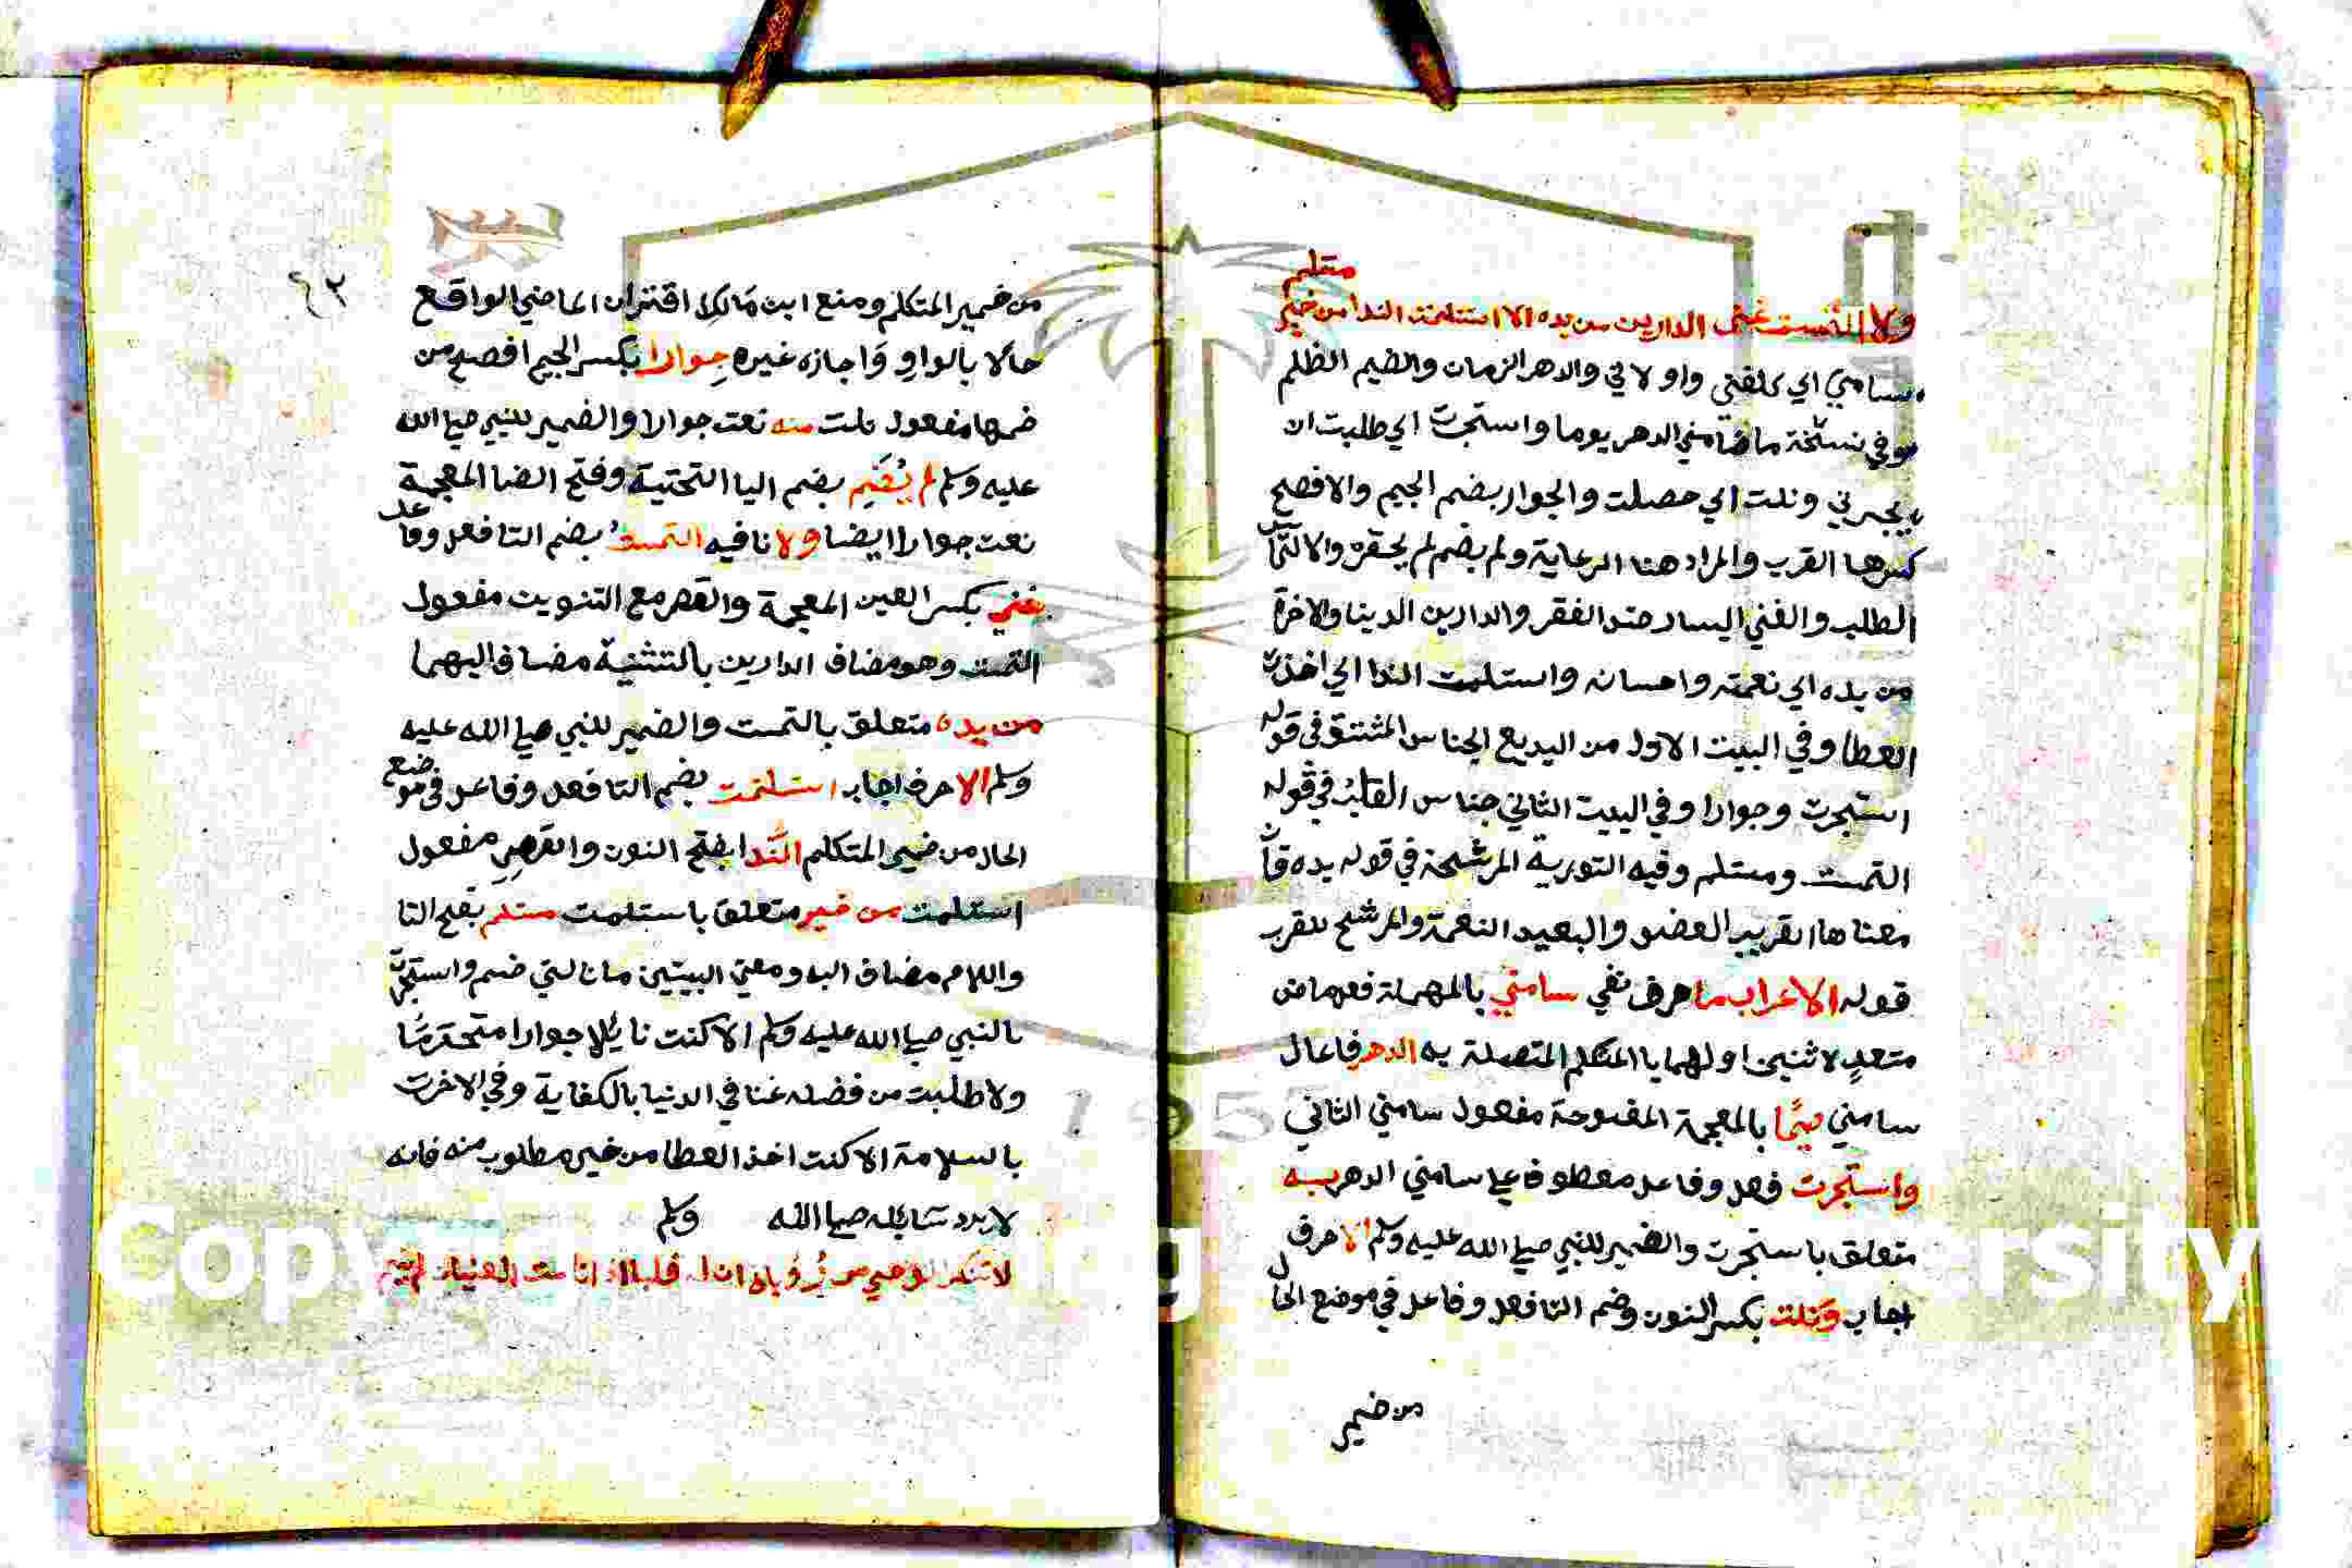 ولا التمست غنى الدارين من يده الا استلمت الندا من خير
مستلم
سامني اي كلفني واولاني والدهر الزمان والضيم الظلم
وفي نسخة ما ضامني الدهر يوما واستجرت اي طلبت ان
يجيرني ونلت اي حصلت والجوار بضم الجيم والافصح
كسرها القرب والمراد هنا الرعاية ولم يضم لم يحقره والالتماس
الطلب والغني اليسار ضد الفقر والدارين الدينا والاخرة
من يده اي نعمته واحسانه واستلمت الندا اي اخذت
العطا وفي البيت الاول من البديع الجناس المشتق في قوله
استجرت وجوارا وفي البيت الثاني جناس القلب في قوله
التمست ومستلم وفيه التورية المرشحة في قوله يده فان
معناها القريب العضو والبعيد النعمة والمرشح للقرب
قوله الاعراب ما حرف نفي سامني بالمهملة فعل ماض
متعدٍ لاثنين اولهما يا المتكلم المتصلة به الدهر فاعال
سامني ضيما بالمعجمة المفتوحة مفعول سامني الثاني
واستجرت فعل وفاعل معطوف علي سامني الدهر به
متعلق باستجرت والضمير للنبي صلي الله عليه وسلم الا حرف
ايجاب ونلت بكسر النون وضم التا فعل وفاعل في موضع الحال
من ضمير
٤٢
من ضمير المتكلم ومنع ابن مالك اقتران الماضي الواقع
حالا بالواو واجازه غيره جوارا بكسر الجيم افصح من
ضمها مفعول نلت منه نعت جوارا والضمير للنبي صلي الله
عليه وسلم لم يُضَم بضم اليا التحتية وفتح الضا المعجمة
نعت جوارا ايضا ولا نافيه التمست بضم التا فعل وفاعل
غني بكسر الغين المعجمة والقصر مع التنوين مفعول
التمست وهو مضاف الدارين بالتثنية مضاف اليهما
من يده متعلق بالتمست والضمير للنبي صلي الله عليه
وسلم الا حرف ايجاب استلمت بضم التا فعل وفاعل في موضع
الحال من ضمير المتكلم الندا بفتح النون والقصر مفعول
استلمت من خير متعلق باستلمت مستلم بفتح التا
واللام مضاف اليه ومعني البيتين ما نالني ضيم واستجرت
بالنبي صلي الله عليه وسلم الا كنت نايلا جوارا
ولا طلبت من فضله غنا في الدنيا بالكفاية وفي الاخرت
بالسلامة الا كنت اخذ العطا من خير مطلوب منه فانه
لا يرد سايله صلي الله وسلم
لا تنكر الوحي من رُؤياه ان له قلبا اذا نامت العينان لم ينم
Copy g rsity
195